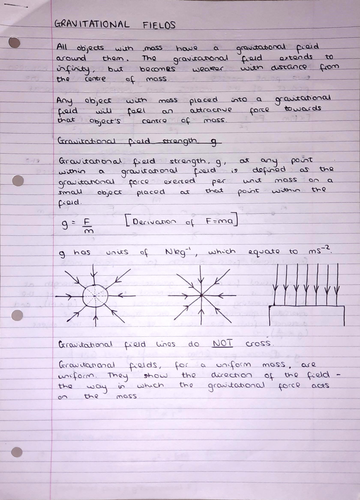 GRAVITATIONAL FIELDS
All objects with mass have a gravitational field
around them. The gravitational field extends to
infinity, but becomes weaker with distance from
the centre of mass
Any object with mass placed into a gravitational
field will feel an attractive force towards
that object's centre of mass.
Gravitational field strength g
Gravitational field strength, g, at any point
within a gravitational field is defined as the
gravitational force exerted per unit mass on a
small object placed at that point within the
field
g = F/m [Derivation of F=ma]
g has units of Nkg⁻¹, which equate to ms⁻².
Gravitational field lines do NOT cross
Gravitational fields, for a uniform mass, are
uniform. They show the direction of the field -
the way in which the gravitational force acts
on the mass